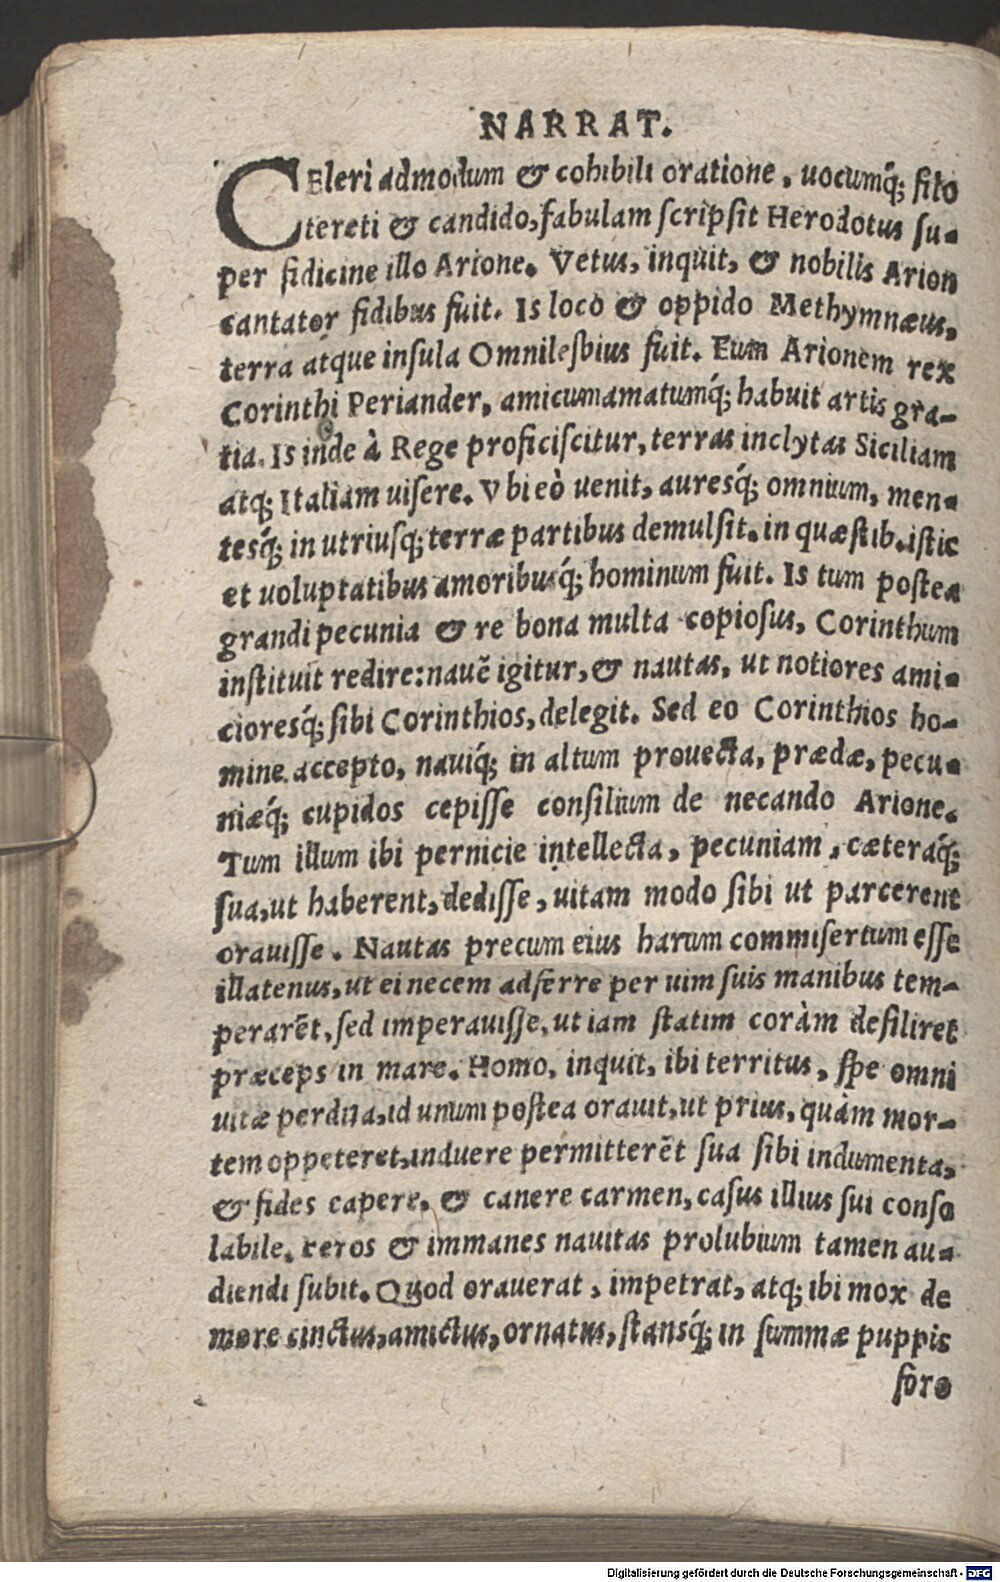 NARRAT.
CEleri admodum & cohibili oratione, uocumq́; filo
tereti & candido, fabulam scripsit Herodotus su-
per fidicine illo Arione. Vetus, inquit, & nobilis Arion
cantator fidibus fuit. Is loco & oppido Methymnæus,
terra atque insula Omnilesbius fuit. Eum Arionem rex
Corinthi Periander, amicum amatumq́; habuit artis gra-
tia. Is inde à Rege proficiscitur, terras inclytas Siciliam
atq; Italiam uisere. Vbi eò uenit, auresq́; omnium, men-
tesq́; in utriusq; terræ partibus demulsit. in quæstib. istic
et uoluptatibus amoribusq́; hominum fuit. Is tum postea
grandi pecunia & re bona multa copiosus, Corinthum
instituit redire: nauẽ igitur, & nautas, ut notiores ami-
cioresq́; sibi Corinthios, delegit. Sed eo Corinthios ho-
mine accepto, nauiq́; in altum prouecta, prædæ, pecu-
niæq́; cupidos cepisse consilium de necando Arione.
Tum illum ibi pernicie intellecta, pecuniam, cæteraq́;
sua, ut haberent, dedisse, uitam modo sibi ut parcerent
orauisse. Nautas precum eius harum commisertum esse
illatenus, ut ei necem adferre per uim suis manibus tem-
perarẽt, sed imperauisse, ut iam statim coràm desiliret
præceps in mare. Homo, inquit, ibi territus, spe omni
uitæ perdita, id unum postea orauit, ut prius, quàm mor-
tem oppeteret, induere permitterẽt sua sibi indumenta,
& fides capere, & canere carmen, casus illius sui conso
labile. feros & immanes nauitas prolubium tamen au-
diendi subit. Quod orauerat, impetrat, atq; ibi mox de
more cinctus, amictus, ornatus, stansq́; in summæ puppis
foro
Digitalisierung gefördert durch die Deutsche Forschungsgemeinschaft - DFG